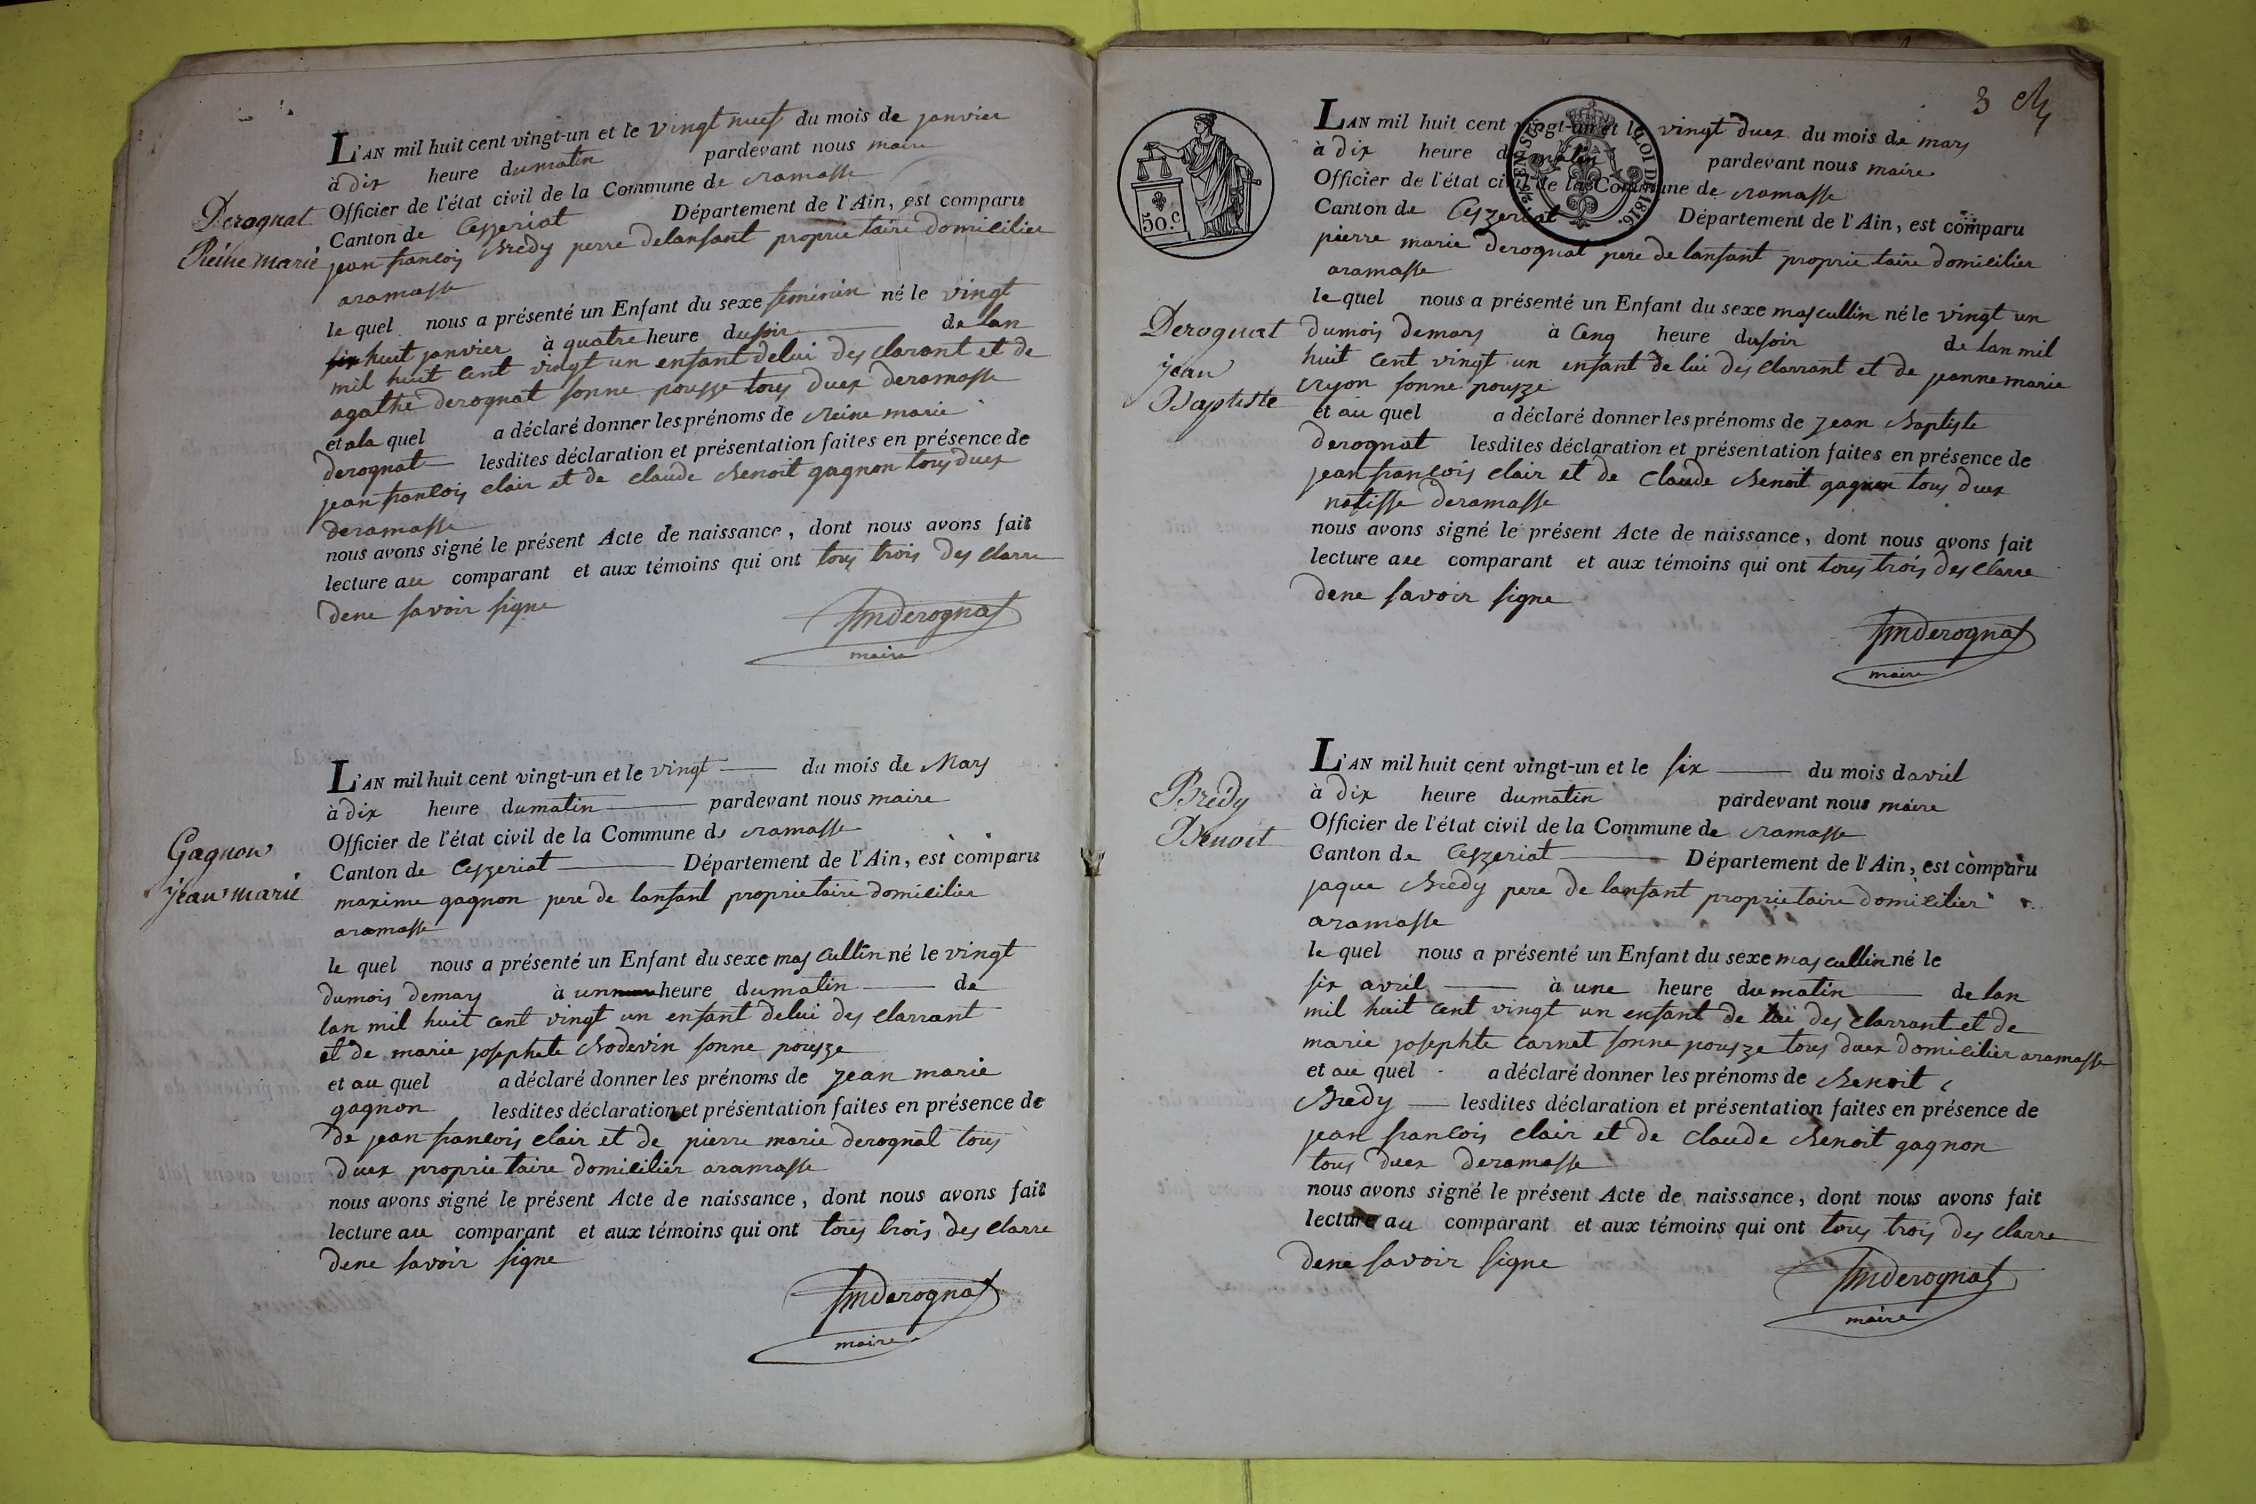 L'AN mil huit cent vingt-un et le vingt neuf du mois de janvier
à dix heure dumatin pardevant nous maire
Officier de l'état civil de la Commune de ramasse
Canton de Ceyzeriat Département de l'Ain, est comparu
Derognat
Reine marie
jean francois Bredy perre delanfant proprietaire domicilier
aramasse
le quel nous a présenté un Enfant du sexe feminin né le vingt
huit janvier à quatre heure dusoir de lan
mil huit cent vingt un enfant delui des clarant et de
agathe derognat sonne pousze tous duex deramasse
et ala quel a déclaré donner les prénoms de Reine marie
derognat lesdites déclaration et présentation faites en présence de
jean francois clair et de claude Benoit gagnon tous duex
deramasse
nous avons signé le présent Acte de naissance, dont nous avons fait
lecture au comparant et aux témoins qui ont tous trois des clarre
dene savoir signe
fmderognat
maire
L'AN mil huit cent vingt-un et le vingt du mois de Mars
à dix heure dumatin pardevant nous maire
Officier de l'état civil de la Commune de ramasse
Gagnon
jean marie
Canton de Ceyzeriat Département de l'Ain, est comparu
maxime gagnon pere de lanfant proprietaire domicilier
aramasse
le quel nous a présenté un Enfant du sexe mascullin né le vingt
dumois demars à un heure dumatin de
lan mil huit cent vingt un enfant delui des clarrant
et de marie josephete Bodevin sonne pousze
et au quel a déclaré donner les prénoms de jean marie
gagnon lesdites déclaration et présentation faites en présence de
de jean francois clair et de pierre marie derognat tous
duex proprietaire domicilier aramasse
nous avons signé le présent Acte de naissance, dont nous avons fait
lecture au comparant et aux témoins qui ont tous trois des clarre
dene savoir signe
fmderognat
maire
3
50.C
LOI DE 1816.
L'AN mil huit cent vingt-un et le vingt duex du mois de mars
à dix heure dumatin pardevant nous maire
Officier de l'état civil de la Commune de ramasse
Canton de Ceyzeriat Département de l'Ain, est comparu
pierre marie derognat pere de lanfant proprietaire domicilier
aramasse
le quel nous a présenté un Enfant du sexe mascullin né le vingt un
Derognat
jean
Baptiste
dumois demars à Cenq heure dusoir de lan mil
huit cent vingt un enfant de lui des clarrant et de jeanne marie
sonne pousze
et au quel a déclaré donner les prénoms de jean Baptiste
derognat lesdites déclaration et présentation faites en présence de
jean francois clair et de claude Benoit gagnon tous duex
natiffe deramasse
nous avons signé le présent Acte de naissance, dont nous avons fait
lecture au comparant et aux témoins qui ont tous trois des clarre
dene savoir signe
fmderognat
maire
L'AN mil huit cent vingt-un et le six du mois davril
Bredy
Benoit
à dix heure dumatin pardevant nous maire
Officier de l'état civil de la Commune de ramasse
Canton de Ceyzeriat Département de l'Ain, est comparu
jaque Bredy pere de lanfant proprietaire domicilier
aramasse
le quel nous a présenté un Enfant du sexe mascullin né le
six avril à une heure dumatin de lan
mil huit cent vingt un enfant de lui des clarrant et de
marie josephte Carnet sonne pousze tous duex domicilier aramasse
et au quel a déclaré donner les prénoms de Benoit
Bredy lesdites déclaration et présentation faites en présence de
jean francois clair et de claude Benoit gagnon
tous duex deramasse
nous avons signé le présent Acte de naissance, dont nous avons fait
lecture au comparant et aux témoins qui ont tous trois des clarre
dene savoir signe
fmderognat
maire